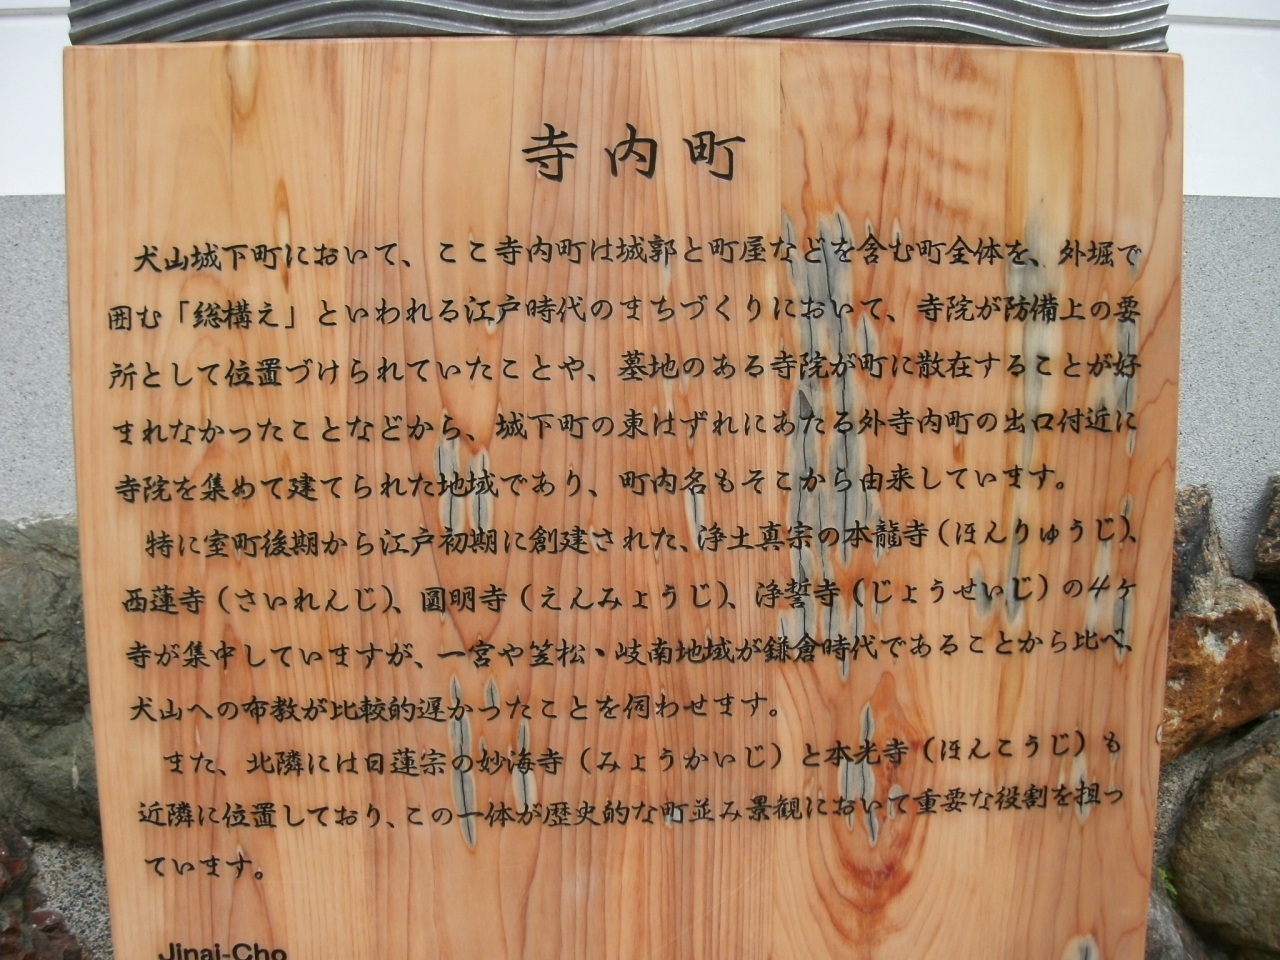 寺内町
犬山城下町において、ここ寺内町は城郭と町屋などを含む町全体を、外堀で
囲む「総構え」といわれる江戸時代のまちづくりにおいて、寺院が防備上の要
所として位置づけられていたことや、墓地のある寺院が町に散在することが好
まれなかったことなどから、城下町の東はずれにあたる外寺内町の出口付近に
寺院を集めて建てられた地域であり、町内名もそこから由来しています。
特に室町後期から江戸初期に創建された、浄土真宗の本龍寺（ほんりゅうじ）、
西蓮寺（さいれんじ）、圓明寺（えんみょうじ）、浄誓寺（じょうせいじ）の4ヶ
寺が集中していますが、一宮や笠松・岐南地域が鎌倉時代であることから比べ、
犬山への布教が比較的遅かったことを伺わせます。
また、北隣には日蓮宗の妙海寺（みょうかいじ）と本光寺（ほんこうじ）も
近隣に位置しており、この一体が歴史的な町並み景観において重要な役割を担っ
ています。
Jinai-Cho